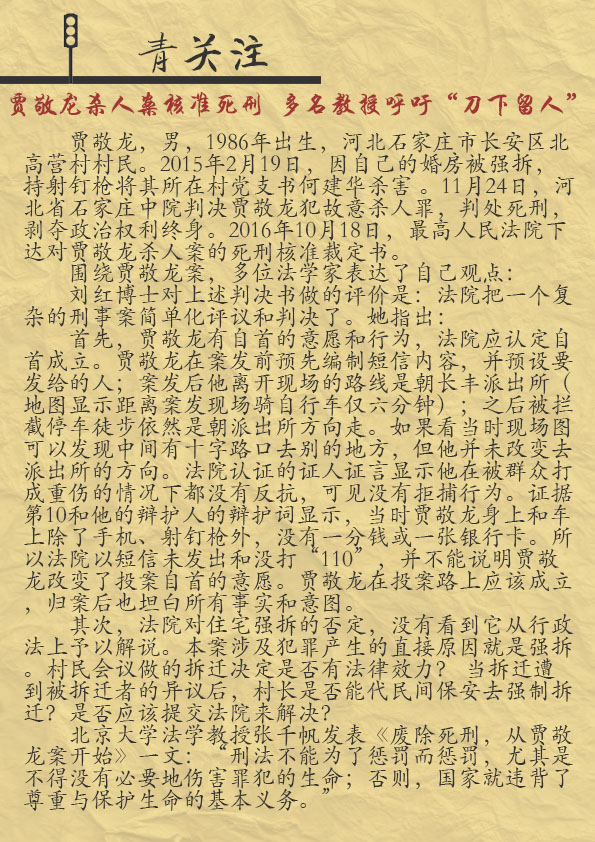 青关注
贾敬龙杀人案核准死刑 多名教授呼吁“刀下留人”
贾敬龙，男，1986年出生，河北石家庄市长安区北
高营村村民。2015年2月19日，因自己的婚房被强拆，
持射钉枪将其所在村党支书何建华杀害。11月24日，河
北省石家庄中院判决贾敬龙犯故意杀人罪，判处死刑，
剥夺政治权利终身。2016年10月18日，最高人民法院下
达对贾敬龙杀人案的死刑核准裁定书。
围绕贾敬龙案，多位法学家表达了自己观点：
刘红博士对上述判决书做的评价是：法院把一个复
杂的刑事案简单化评议和判决了。她指出：
首先，贾敬龙有自首的意愿和行为，法院应认定自
首成立。贾敬龙在案发前预先编制短信内容，并预设要
发给的人；案发后他离开现场的路线是朝长丰派出所（
地图显示距离案发现场骑自行车仅六分钟）；之后被拦
截停车徒步依然是朝派出所方向走。如果看当时现场图
可以发现中间有十字路口去别的地方，但他并未改变去
派出所的方向。法院认证的证人证言显示他在被群众打
成重伤的情况下都没有反抗，可见没有拒捕行为。证据
第10和他的辩护人的辩护词显示，当时贾敬龙身上和车
上除了手机、射钉枪外，没有一分钱或一张银行卡。所
以法院以短信未发出和没打“110”，并不能说明贾敬
龙改变了投案自首的意愿。贾敬龙在投案路上应该成立
，归案后也坦白所有事实和意图。
其次，法院对住宅强拆的否定，没有看到它从行政
法上予以解说。本案涉及犯罪产生的直接原因就是强拆
。村民会议做的拆迁决定是否有法律效力？ 当拆迁遭
到被拆迁者的异议后，村长是否能代民间保安去强制拆
迁？是否应该提交法院来解决？
北京大学法学教授张千帆发表《废除死刑，从贾敬
龙案开始》一文：“刑法不能为了惩罚而惩罚，尤其是
不得没有必要地伤害罪犯的生命；否则，国家就违背了
尊重与保护生命的基本义务。”